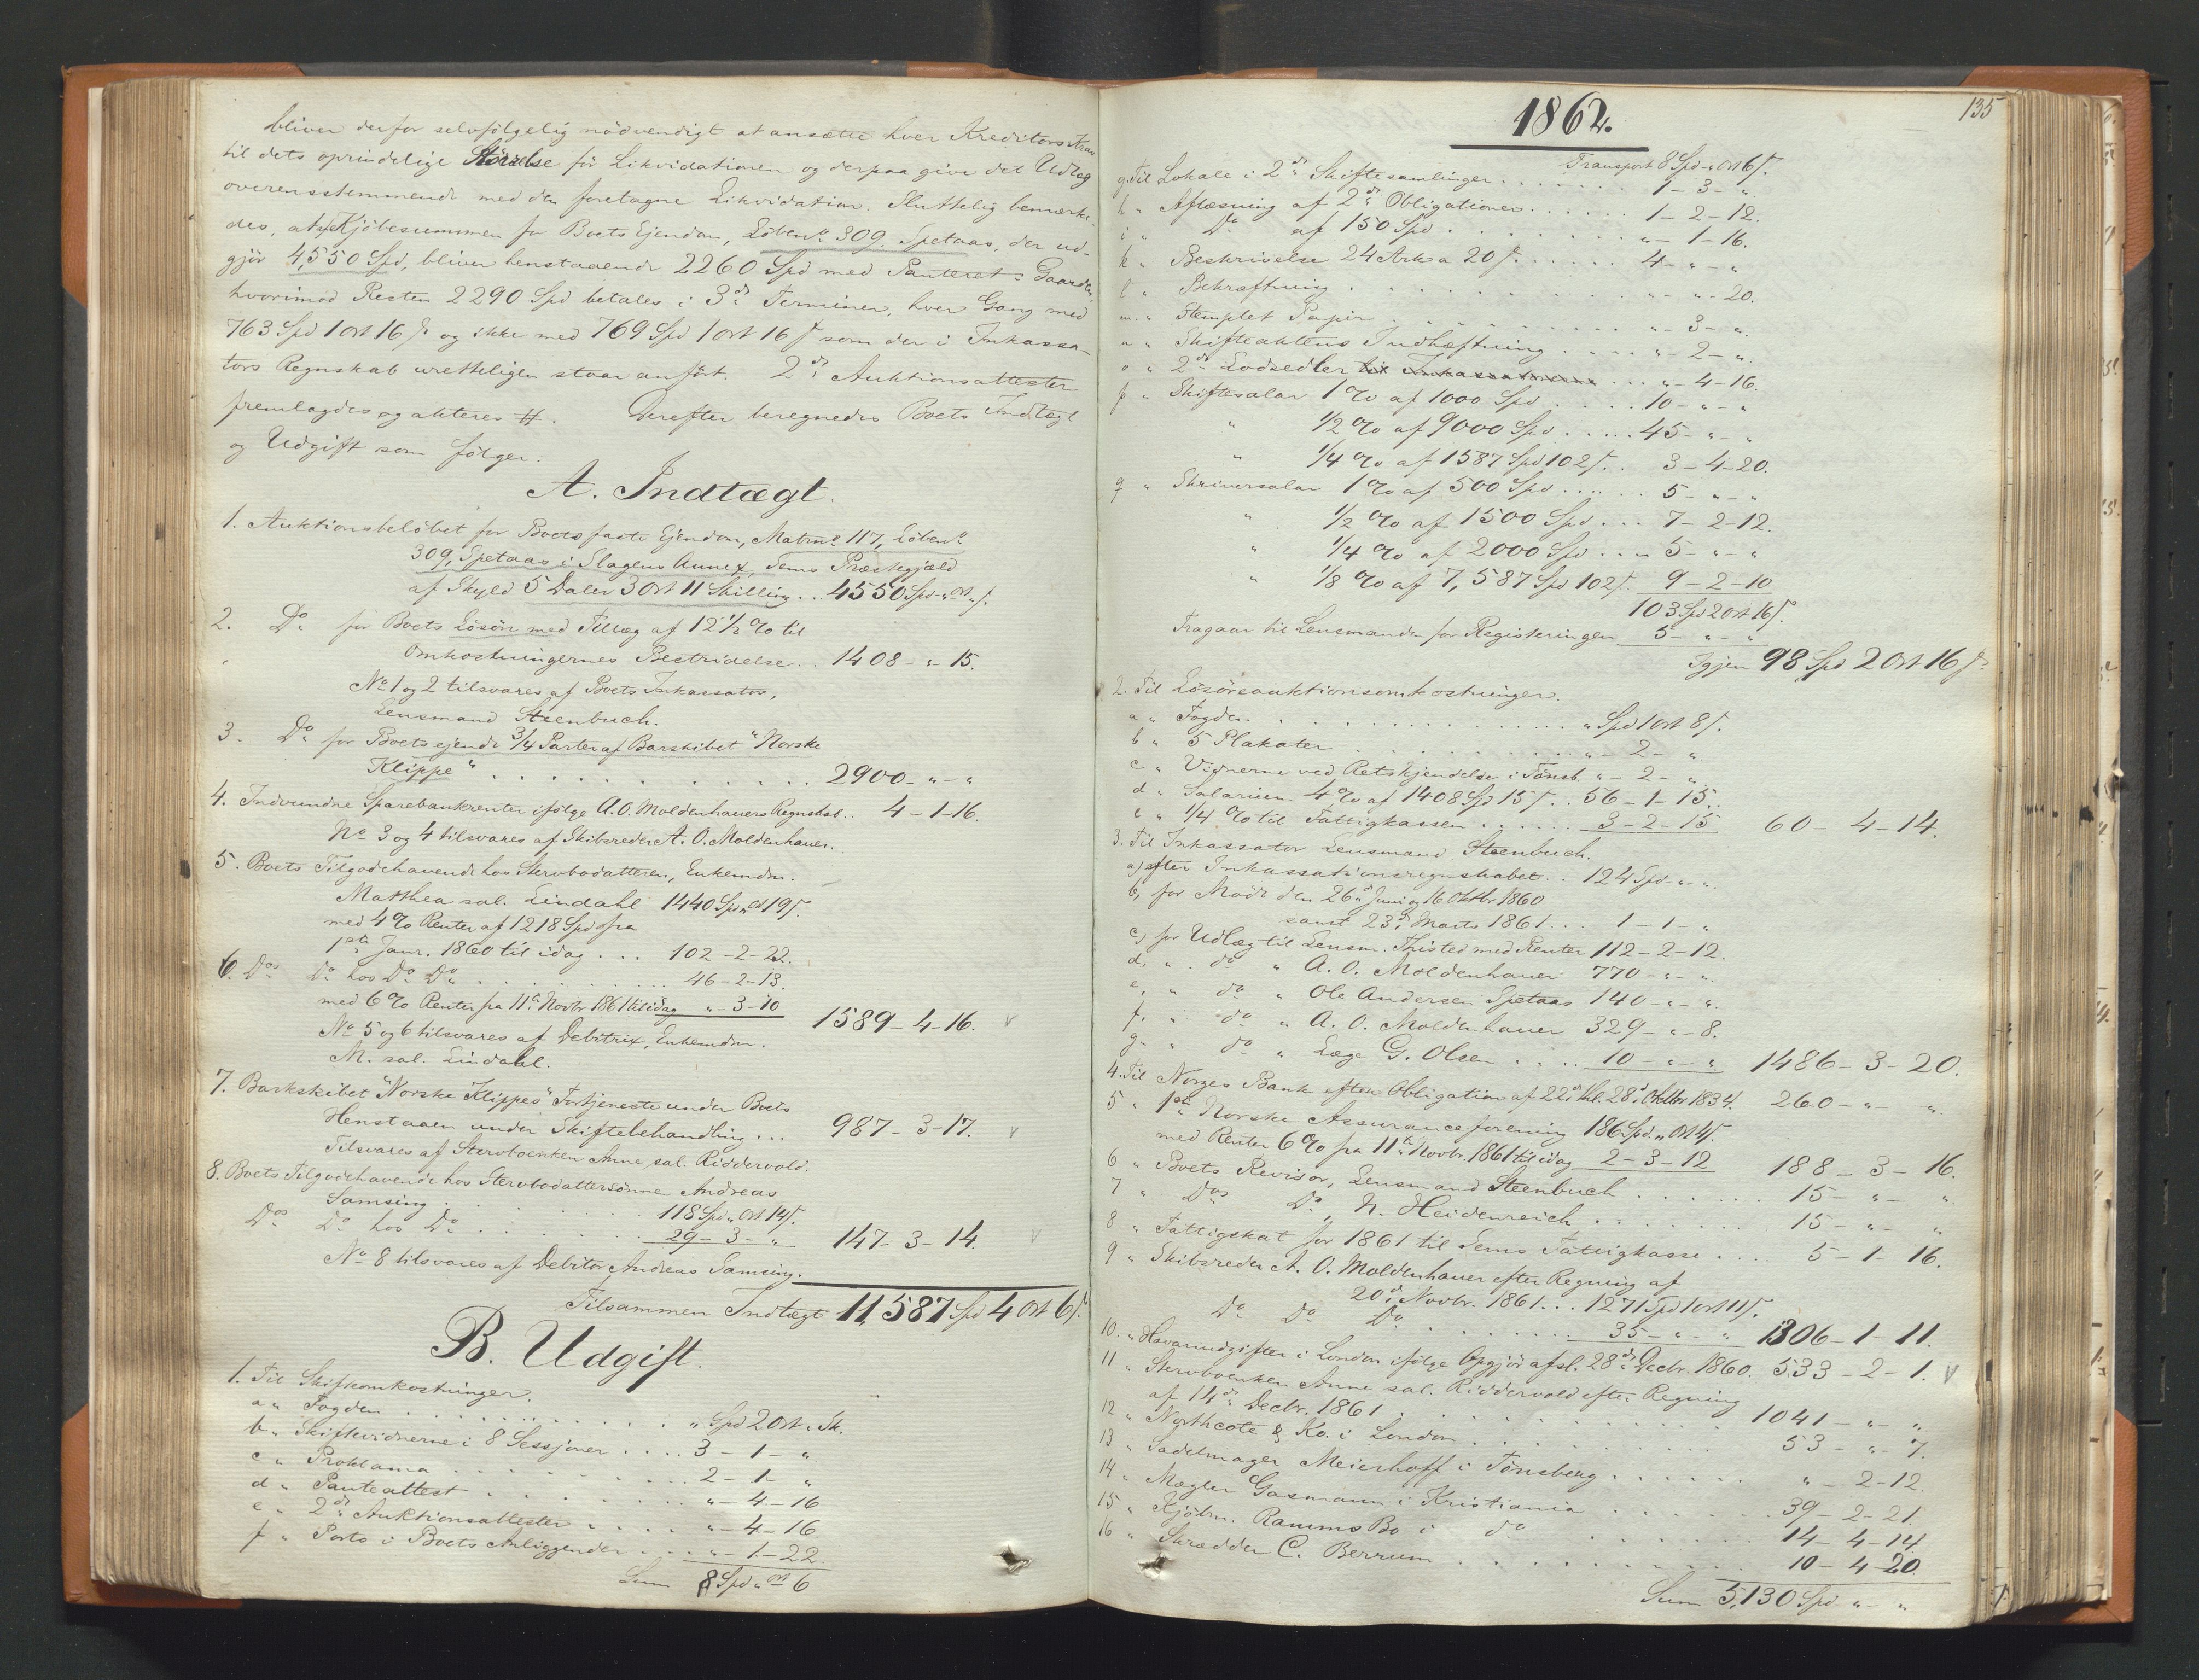 bliver derfor selvfölgelig nödvendigt at ansætte hver Kreditors Krav
til dets oprindelige Störrelse för Likvidationen og derpaa give det Udlæg
overensstemmende med den foretagne Likvidation. Sluttelig bemærke-
des, at af Kjöbesummen for Boets Ejendom, Löben° 309, Spetaas, der ud-
gjör 4,550 Spd, bliver henstaaende 2260 Spd med Panteret i Gaarden
hvorimod Resten 2290 Spd betales i 3de Terminer, hver Gang med
763 Spd 1 ort 16 ß og ikke med 769 Spd 1 ort 16 ß som der i Inkassa-
tors Regnskab uretteligen staar anfört. 2de Auktionsattester
fremlagdes og akteres #. Derefter beregnedes Boets Indtægt
og Udgift som fölger:
A. Indtægt.
1. Auktionsbelöbet for Boets faste Ejendom, Matrn° 117, Löben°
309, Spetaas i Slagens Annex, Sems Præstegjæld
af Skyld 5 Daler 3 Ort 11 Skilling .. 4550 Spd " ort " ß.
2. Do for Boets Lösöre med Tillæg af 12 1/2 % til
Omkostningernes Bestridelse .. 1408 - " - 15.
No 1 og 2 tilsvares af Boets Inkassator,
Lensmand Steenbuch.
3. Do for Boets ejende 3/4 Parter af Barkskibet "Norske
Klippe" . . . . . . . 2900 - " - "
4. Indvundne Sparebankrenter ifölge A. O. Moldenhauers Regnskab .. 4 - 1 - 16.
No 3 og 4 tilsvares af Skibsreder A. O. Moldenhauer.
5. Boets Tilgodehavende hos Stervbodatteren, Enkemdm.
Matthea sal. Lindahl 1440 Spd " ort 19 ß.
med 4 % Renter af 1218 Spd fra
1ste Janr. 1860 til idag . . . 102 - 2 - 22.
6. Dos Do hos Do Do . . . . . 46 - 2 - 13.
med 6 % Renter fra 11te Novbr 1861 til idag " - 3 - 10 1589 - 4 - 16. v
No 5 og 6 tilsvares af Debitrix, Enkemdm.
M. sal. Lindahl.
7. Barkskibet "Norske Klippes" Fortjeneste under Boets
Henstaaen under Skiftebehandling ... 987 - 3 - 17. v
Tilsvares af Stervboenken Anne sal. Riddervold.
8. Boets Tilgodehavende hos Stervbodattersönnen Andreas
Samsing . . . . . 118 Spd " Ort 14 ß.
Dos Do hos Do . . . . . 29 - 3 - " 147 - 3 - 14. v
No 8 tilsvares af Debitor Andreas Samsing.
Tilsammen Indtægt 11,587 Spd 4 Ort 6 ß.
B. Udgift.
1. Til Skifteomkostninger.
a " Fogden . . . . . " Spd 2 Ort " Sk.
b " Skiftevidnerne i 8 Sessjoner . . . . 3 - 1 - "
c " Proklama . . . . . 2 - 1 - "
d " Panteattest . . . . . " - 4 - 16
e " 2de Auktionsattester . . . . . " - 4 - 16
f " Porto i Boets Anliggender . . . " - 1 - 22.
Sum 8 Spd " ort 6
1862. 135
Transport 8 Spd " Ort 6 ß.
g. Til Lokale i 2de Skiftesamlinger . . . . . . 1 - 3 - "
h " Aflæsning af 2de Obligationer . . . . . . 1 - 2 - 12.
i " Do af 150 Spd . . . . . . " - 1 - 16.
k " Beskrivelse 24 Ark a 20 ß . . . . . 4 - " - "
l " Bekræftning . . . . . . " - " - 20.
m " Stemplet Papir . . . . . . " - 3 - "
n " Skifteaktens Indhæftning . . . . " - 2 - "
o " 2de Lodsedler til Inkassatorerne . . . " - 4 - 16.
p " Skiftesalær 1 % af 1000 Spd . . . . 10 - " - "
" 1/2 % af 9000 Spd . . . . . 45 - " - "
" 1/4 % af 1587 Spd 102 ß . . 3 - 4 - 20.
q " Skriversalær 1 % af 500 Spd . . . . . 5 - " - "
" 1/2 % af 1500 Spd . . . 7 - 2 - 12.
" 1/4 % af 2000 Spd . . . 5 - " - "
" 1/8 % af 7,587 Spd 102 ß. 9 - 2 - 10
103 Spd 2 Ort 16 ß.
Fragaar til Lensmanden for Registeringen 5 - " - "
Igjen 98 Spd 2 Ort 16 ß.
2. Til Lösöreauktionsomkostninger.
a " Fogden . . . . . . " Spd 1 ort 8 ß.
b " 5 Plakater . . . . . . " - 2 - "
c " Vidnerne ved Retskjendelse i Tönsb. " - 2 - "
d " Salarium 4 % af 1408 Spd 15 ß . . 56 - 1 - 15.
e " 1/4 % til Fattigkassen . . . . . . 3 - 2 - 15 60 - 4 - 14.
3. Til Inkassator Lensmand Steenbuch.
a) efter Inkassationsregnskabet . . 124 Spd - " - "
b, for Möde den 26de Juni og 16 Oktbr 1860
samt 23de Marts 1861 . . . 1 - 1 - "
c) for Udlæg til Lensm. Thisted med Renter 112 - 2 - 12.
d, " do " A. O. Moldenhauer 770 - " - "
e, " do " Ole Andersen Spetaas 140 - " - "
f. " do " A. O. Moldenhauer 329 - " - 8.
g. " do " Læge G. Olsen . . . . 10 - " - " 1486 - 3 - 20.
4. Til Norges Bank efter Obligation af 22de thl. 28de Oktbr 1834. 260 - " - "
5 " 1ste Norske Assuranceforening 186 Spd " Ort 4 ß.
med Renter 6 % fra 11te Novbr. 1861 til idag 2 - 3 - 12 188 - 3 - 16.
6 " Boets Revisor, Lensmand Steenbuch . . . . . . 15 - " - "
7 " Dos Do, N. Heidenreich . . . . . . 15 - " - "
8 " Fattigskat for 1861 til Sems Fattigkasse . . . 5 - 1 - 16.
9 " Skibsreder A. O. Moldenhauer efter Regning af
20de Novbr. 1861 . . . 1271 Spd 1 ort 11 ß.
Do Do Do . . . . . . 35 - " - " 1306 - 1 - 11.
10. " Havareudgifter i London ifölge Opgjör afsl. 28de Decbr. 1860. 533 - 2 - 1. v
11 " Stervboenken Anne sal. Riddervold efter Regning
af 14de Decbr. 1861 . . . . . . 1041 - " - "
12 " Northcote & Ko. i London . . . . . . 53 - " - 7.
13 " Sadelmager Meierhoff i Tönsberg . . . . . . " - 2 - 12.
14 " Mægler Gasmann i Kristiania . . . . . . 39 - 2 - 21.
15 " Kjöbm. Ramms Bo i do . . . . . . 14 - 4 - 14.
16 " Skrædder C. Berrum . . . . . . 10 - 4 - 20.
Sum 5,130 Spd " - "